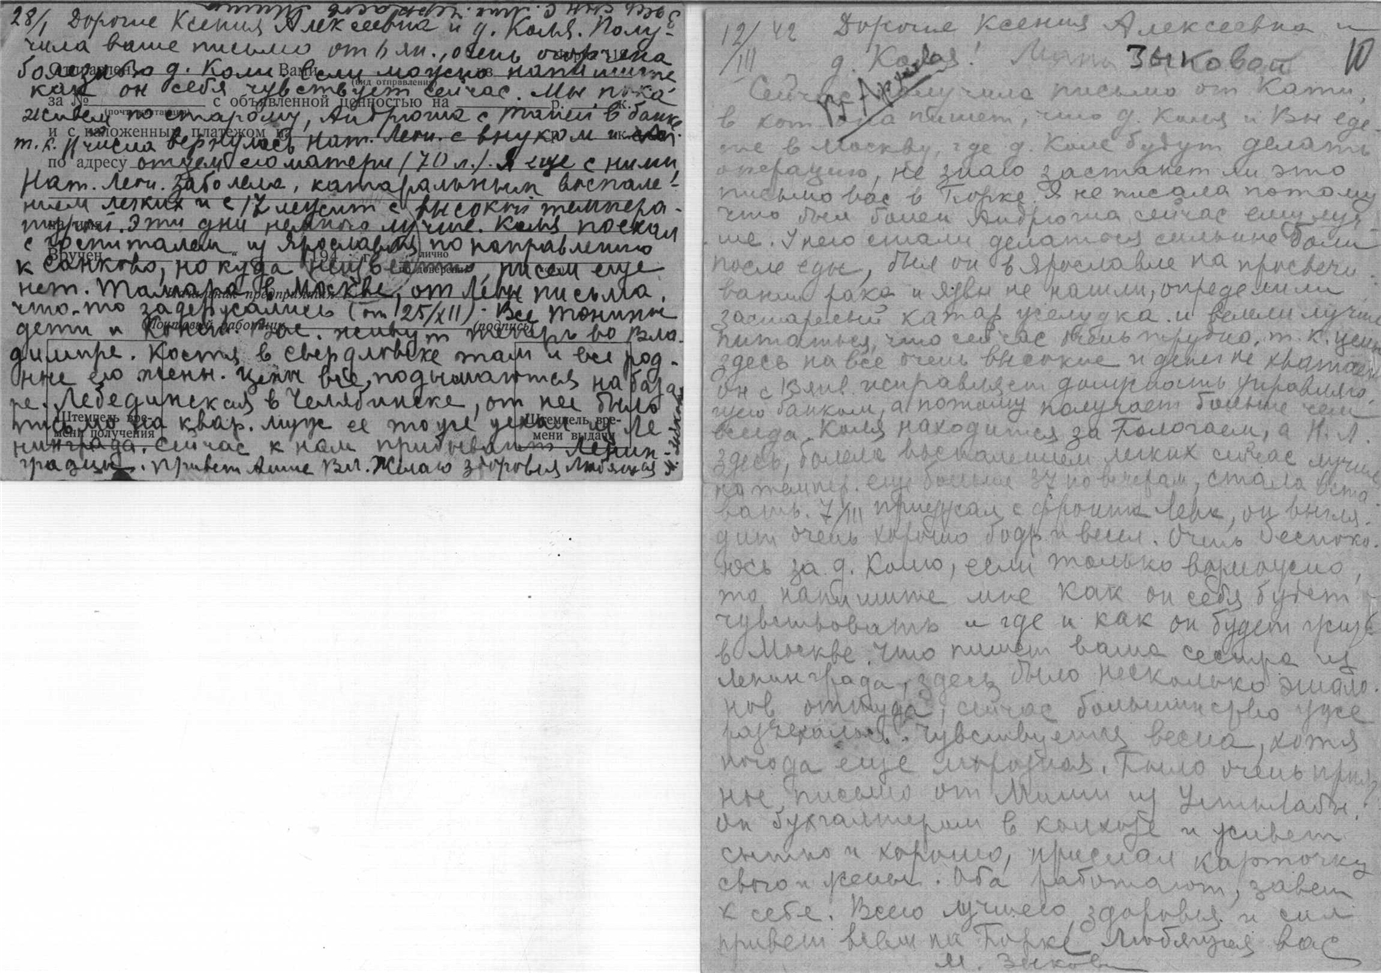 28/1 Дорогие Ксения Алексеевна и д. Коля. Полу-
чила ваше письмо от 6 ян., очень огорчена
болезнью д. Коли. если можно напишите
как он себя чувствует сейчас. Мы пока
за № с объявленной ценностью на р. к.
живем по старому, Андрюша с Таней в банке
и с наложенным платежом
т. к. числа вернулась Нат. Леон. с внуком и
по адресу
отцем его матери (70 л.). Я еще с ними,
Нат. Леон. заболела, катаральным воспале-
нием легких и с 17 лежит с высокой темпера-
турой. Эти дни немного лучше. Коля поехал
с госпиталем из Ярославля по направлению
Вручен 194 г. лично
к Санково, но куда неизвестно, писем еще
нет. Тамара в Москве, от Лёни письма
что-то задержались (от 25/XII). Все Тонины
дети и живут теперь во Вла-
димире. Костя в Свердловске там и все род-
ные его жены. Цены все подымаются на база-
ре. Лебединская в Челябинске, от нее было
Штемпель вре-
мени получения
Штемпель вре-
мени выдачи
письмо на квар. муж ее тоже уехал из Ле-
нинграда. Сейчас к нам прибывают Ленин-
градцы. Привет Анне Вл. Желаю здоровья Любящая
12/III 42 Дорогие Ксения Алексеевна и
д. Коля! Зыковой 10
Сейчас получила письмо от Кати,
в котором она пишет, что д. Коля и Вы еде-
те в Москву, где д. Коле будут делать
операцию, не знаю застанет ли это
письмо вас в Горке. Я не писала потому
что был болен Андрюша сейчас ему луч-
ше. У него стали делаться сильные боли
после еды, был он в Ярославле на просвечи-
вании рака и язвы не нашли, определили
застарелый катар желудка и велели лучше
питаться, что сейчас очень трудно, т. к. цены
здесь на все очень высокие и денег не хватает
он с исправляет должность управляю-
щего банком, а потому получает больше чем
всегда. Коля находится за Бологаем, а Н. Л.
здесь, болела воспалением легких сейчас лучше
но темпер. еще больше 37 по вечерам, стала вста-
вать. 7/III приезжал с фронта Леня, он выгля-
дит очень хорошо бодр и весел. Очень беспоко-
юсь за д. Колю, если только возможно,
то напишите мне как он себя будет
чувствовать и где и как он будет жить
в Москве. Что пишет ваша сестра из
Ленинграда, здесь было несколько эшело-
нов оттуда, сейчас большинство уже
разъехалось. Чувствуется весна, хотя
погода еще морозная. Было очень прият-
ное письмо от Миши из Усть-Лабы.
Он бухгалтером в колхозе и живет
сытно и хорошо, прислал карточку
свою и жены. Оба работают, завет
к себе. Всего лучшего здоровья и сил
привет всем на Горке Любящая вас
М. Зыкова